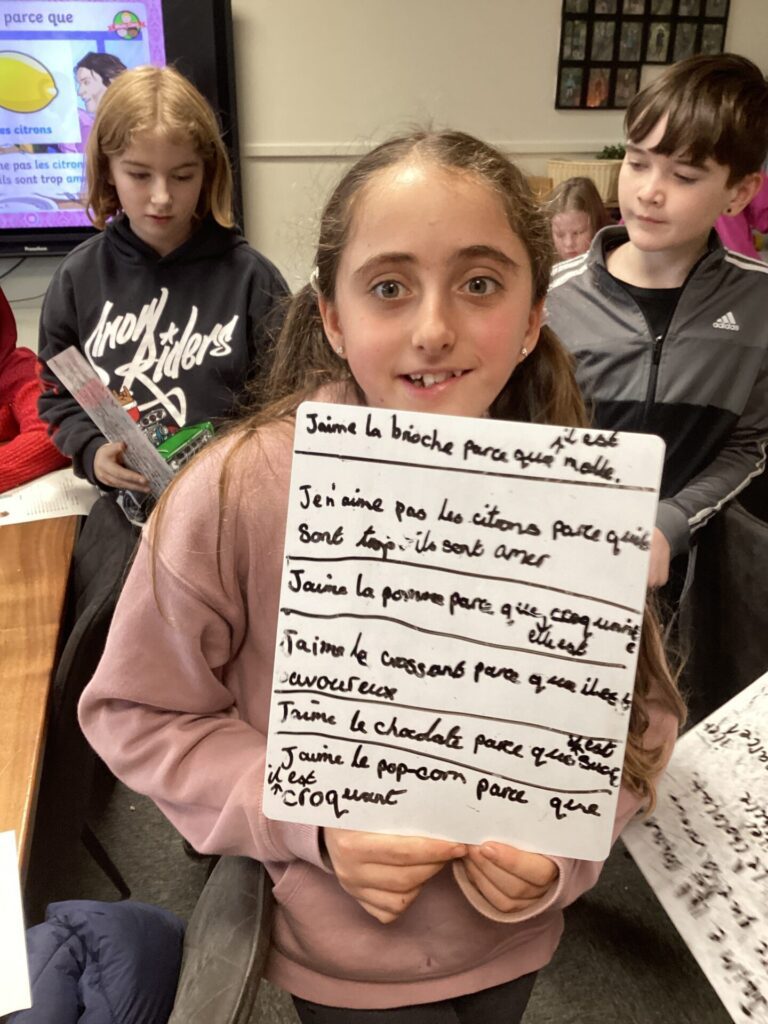 parce que
es citrons
ne pas les citron
ils sont trop am
Promethean
Iron
Riders
adidas
J'aime la brioche parce que il est molle.
Je n'aime pas les citrons parce quils
sont trop ils sont amer
J'aime la pomme parce que elle est croquante
J'aime le crossant parce que il est
savoureux
J'aime le chocolate parce que il est sucé
J'aime le pop-corn parce que
il est croquant